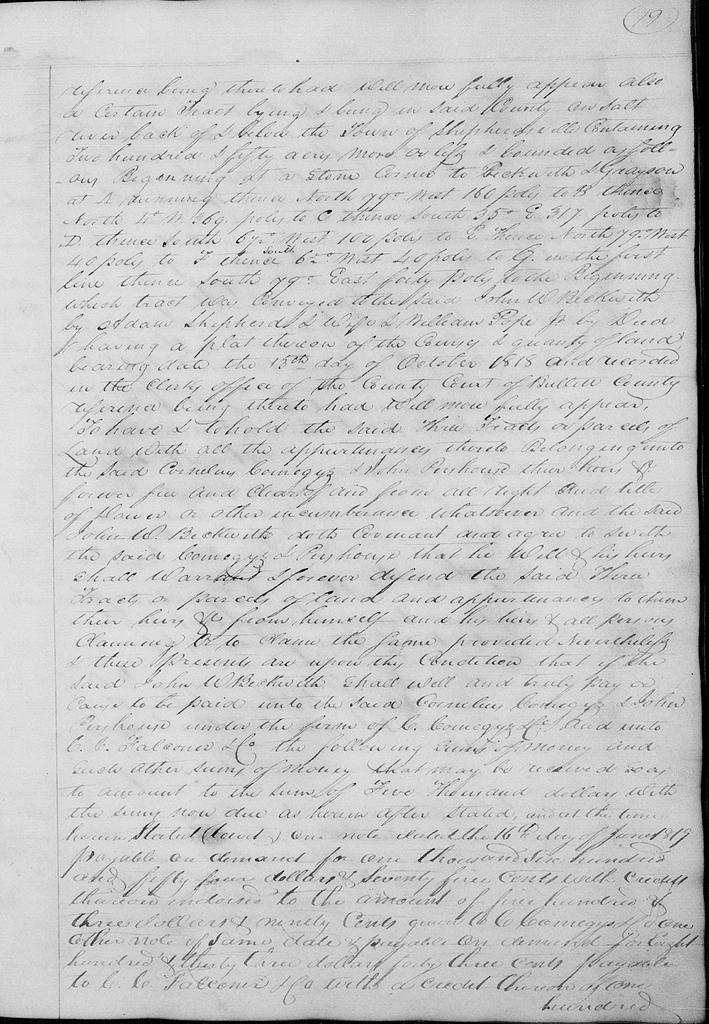 19
reference being thereto had will more fully appear also
a Certain Tract lying & being in said County on Salt
river back of & below the Town of Shepherdsville Containing
Two hundred & fifty acres more or less & bounded as foll-
-ows Beginning at a Stone Corner to Beckwith & Grayson
at A running thence North 79° West 160 poles to B thence
North 4° W. 369. poles to C thence South 35° E. 317 poles to
D. thence South 67° West 100 poles to E. Thence North 79° West
40 poles to F thence South 6½° West 40 poles to G. in the first
line thence South 79° East forty poles to the Beginning.
which tract was Conveyed to the said John W Beckwith
by Adam Shepherd & Wife & William Pope Jr by Deed
having a plat thereon of the Courses & quantity of land
bearing date the 15th day of October 1818 and recorded
in the Clerks office of the County Court of Bullitt County
reference being thereto had Will more fully appear,
To have & to hold the said Three Tracts or parcels of
Land with all the appurtenances thereto Belonging unto
the said Cornelius Comegys & John Pershouse their heirs &c
forever free and Clear of and from all right and title
of Dower or other incumberance whatsoever and the said
John W. Beckwith doth Covenant and agree to & with
the said Comegys & Pershouse that he Will & his heirs
shall Warrant & forever defend the said Three
Tracts or parcels of land and appurtenances to them
their heirs &c from himself and his heirs & all persons
Claiming or to Claim the same provided Nevertheless
& these presents are upon this Condition that if the
said John W Beckwith shall well and truly pay or
Cause to be paid unto the said Cornelius Comegys & John
Pershouse under the firm of C. Comegys & Co. And unto
C. C. Falconer & Co the following sums of money and
such other sums of money that may be received so as
to amount to the sum of Five Thousand dollars with
the sums now due as herein after stated, and at the time
herein stated (towit) one note dated the 16th day of June 1819
payable on demand for one thousand six hundred
and fifty four dollars & seventy five Cents with Credits
thereon indorsed to the amount of five hundred &
three dollars & ninety Cents given to C Comegys & Co one
other note of same date & payable on demand for Eight
hundred & thirty three dollars forty three cents payable
to C. C. Falconer & Co with a credit thereon of one
hundred